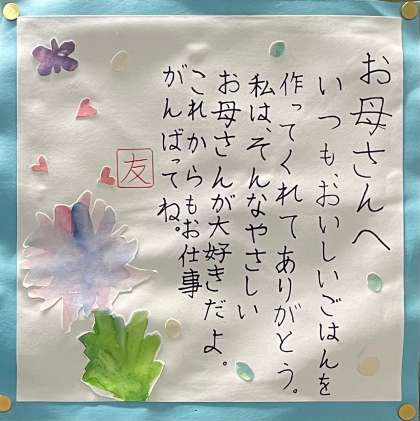 お母さんへ
いつも、おいしいごはんを
作ってくれてありがとう。
私は、そんなやさしい
お母さんが大好きだよ。
これからもお仕事
がんばってね。
友